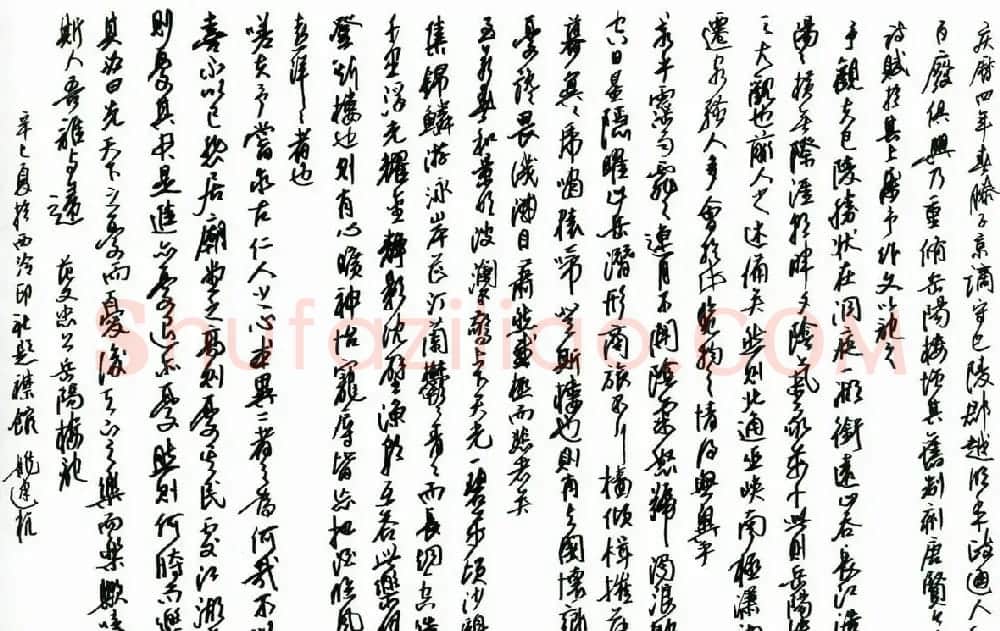 庆曆四年春滕子京谪守巴陵郡越明年政通人
百廢俱興乃重修岳陽樓增其舊制刻唐賢今
詩賦於其上屬予作文以記之
予觀夫巴陵勝狀在洞庭一湖銜遠山吞長江浩
湯湯横無際涯朝暉夕陰氣象萬千此則岳陽樓
之大觀也前人之述備矣然則北通巫峡南極瀟湘
遷客騷人多會於此覽物之情得無異乎
若夫霪雨霏霏連月不開陰風怒號濁浪排
空日星隱曜山岳潛形商旅不行檣傾楫摧薄
暮冥冥虎嘯猿啼登斯樓也則有去國懷鄉
憂讒畏譏滿目蕭然感極而悲者矣
至若春和景明波瀾不驚上下天光一碧萬頃沙鷗
集錦鱗游泳岸芷汀蘭鬱鬱青青而長烟一空皓
千里浮光耀金静影沈璧漁歌互答此樂何
登斯樓也則有心曠神怡寵辱皆忘把酒臨風
喜洋洋者也
嗟夫予嘗求古仁人之心或異二者之為何哉不以
喜不以己悲居廟堂之高則憂其民處江湖
則憂其君是進亦憂退亦憂然則何時而樂
其必曰先天下之憂而憂後天下之樂而樂歟噫
斯人吾誰與歸 范文忠公岳陽樓記
辛巳夏於西泠印社題襟館
Shufaziliao.COM